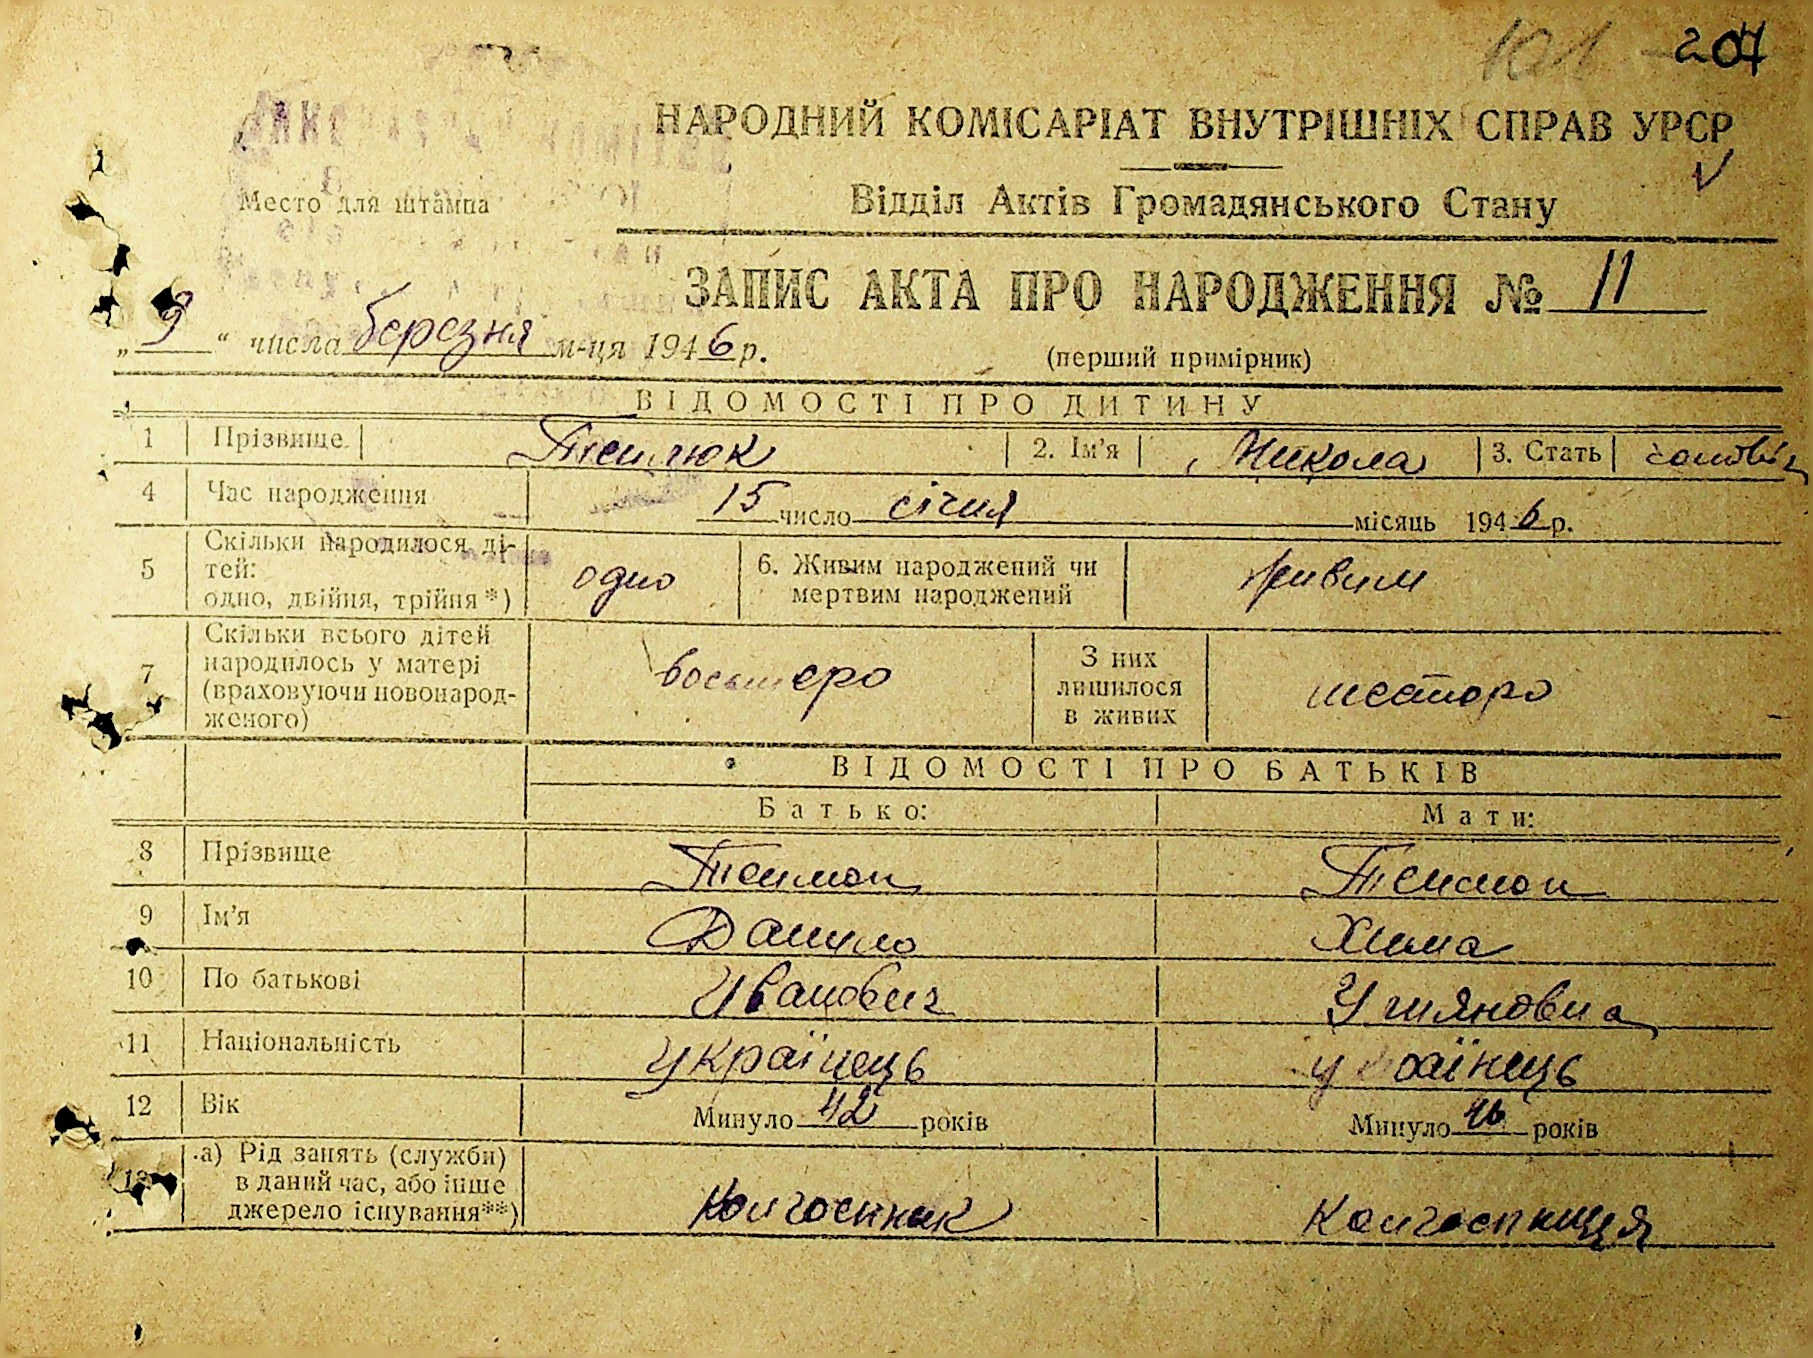 101 - 207
НАРОДНИЙ КОМІСАРІАТ ВНУТРІШНІХ СПРАВ УРСР
Место для штампа
Відділ Актів Громадянського Стану
ЗАПИС АКТА ПРО НАРОДЖЕННЯ № 11
„ 9 “ числа березня м-ця 1946 р.
(перший примірник)
ВІДОМОСТІ ПРО ДИТИНУ
1 Прізвище 2. Ім'я Микола 3. Стать
4 Час народження 15 число січня місяць 1946 р.
5 Скільки народилося ді-
тей:
одно, двійня, трійня *) одно 6. Живим народжений чи
мертвим народжений живим
7 Скільки всього дітей
народилось у матері
(враховуючи новонарод-
женого) восьмеро З них
лишилося
в живих шестеро
ВІДОМОСТІ ПРО БАТЬКІВ
Батько: Мати:
8 Прізвище
9 Ім'я Данило Хима
10 По батькові Иванович
11 Національність українець українець
12 Вік Минуло 42 років Минуло років
13 а) Рід занять (служби)
в даний час, або інше
джерело існування**) Колгоспник Колгоспниця